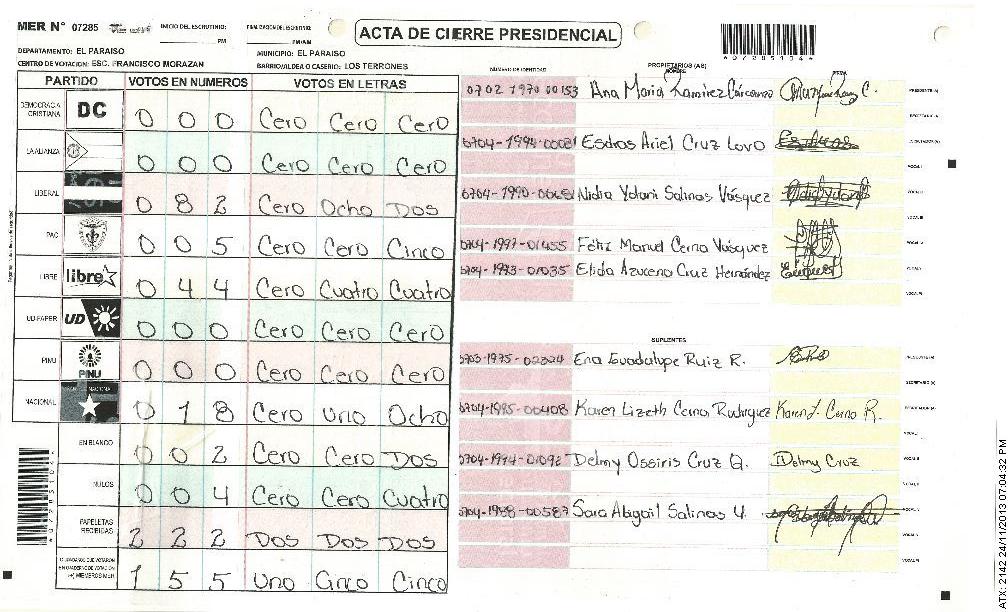 MER N° 07285
INICIO DEL ESCRUTINIO:
PM
FINALIZACION DEL ESCRUTINIO:
PM/AM
ACTA DE CIERRE PRESIDENCIAL
DEPARTAMENTO: EL PARAISO
MUNICIPIO: EL PARAISO
CENTRO DE VOTACION: ESC. FRANCISCO MORAZAN
BARRIO/ALDEA O CASERIO: LOS TERRONES
PARTIDO VOTOS EN NUMEROS VOTOS EN LETRAS
DEMOCRACIA CRISTIANA DC 0 0 0 Cero Cero Cero
LA ALIANZA 0 0 0 Cero Cero Cero
LIBERAL 0 8 2 Cero Ocho Dos
PAC 0 0 5 Cero Cero Cinco
LIBRE libre 0 4 4 Cero Cuatro Cuatro
UD-FAPER UD 0 0 0 Cero Cero Cero
PINU PINU 0 0 0 Cero Cero Cero
NACIONAL 0 1 8 Cero Uno Ocho
EN BLANCO 0 0 2 Cero Cero Dos
NULOS 0 0 4 Cero Cero Cuatro
PAPELETAS RECIBIDAS 2 2 2 Dos Dos Dos
CIUDADANOS QUE VOTARON EN CUADERNO DE VOTACION (+) MIEMBROS MER 1 5 5 Uno Cinco Cinco
NUMERO DE IDENTIDAD
PROPIETARIOS (AS)
NOMBRE
FIRMA
0702 1970 00153 Ana Maria Ramirez PRESIDENTE (A)
SECRETARIO (A)
Esdras Ariel Cruz Lovo ESCRUTADOR (A)
VOCAL I
Nidia Yolani Salinas Vásquez VOCAL II
VOCAL III
0704-1997-01455 Féliz Manuel Cerna Vásquez
0704-1973-01035 Elida Azucena Cruz Hernández
SUPLENTES
0703-1975-02324 Ena Guadalupe Ruiz R. PRESIDENTE (A)
SECRETARIO (A)
0704-1995-00408 Karen Lizeth Cerna Rodriguez Karen L. Cerna R. ESCRUTADOR (A)
0704-1994-01092 Delmy Ossiris Cruz Q. Delmy Cruz
Sara Abigail Salinas V.
*07285104*
ATX: 2142 24/11/2013 07:04:32 PM